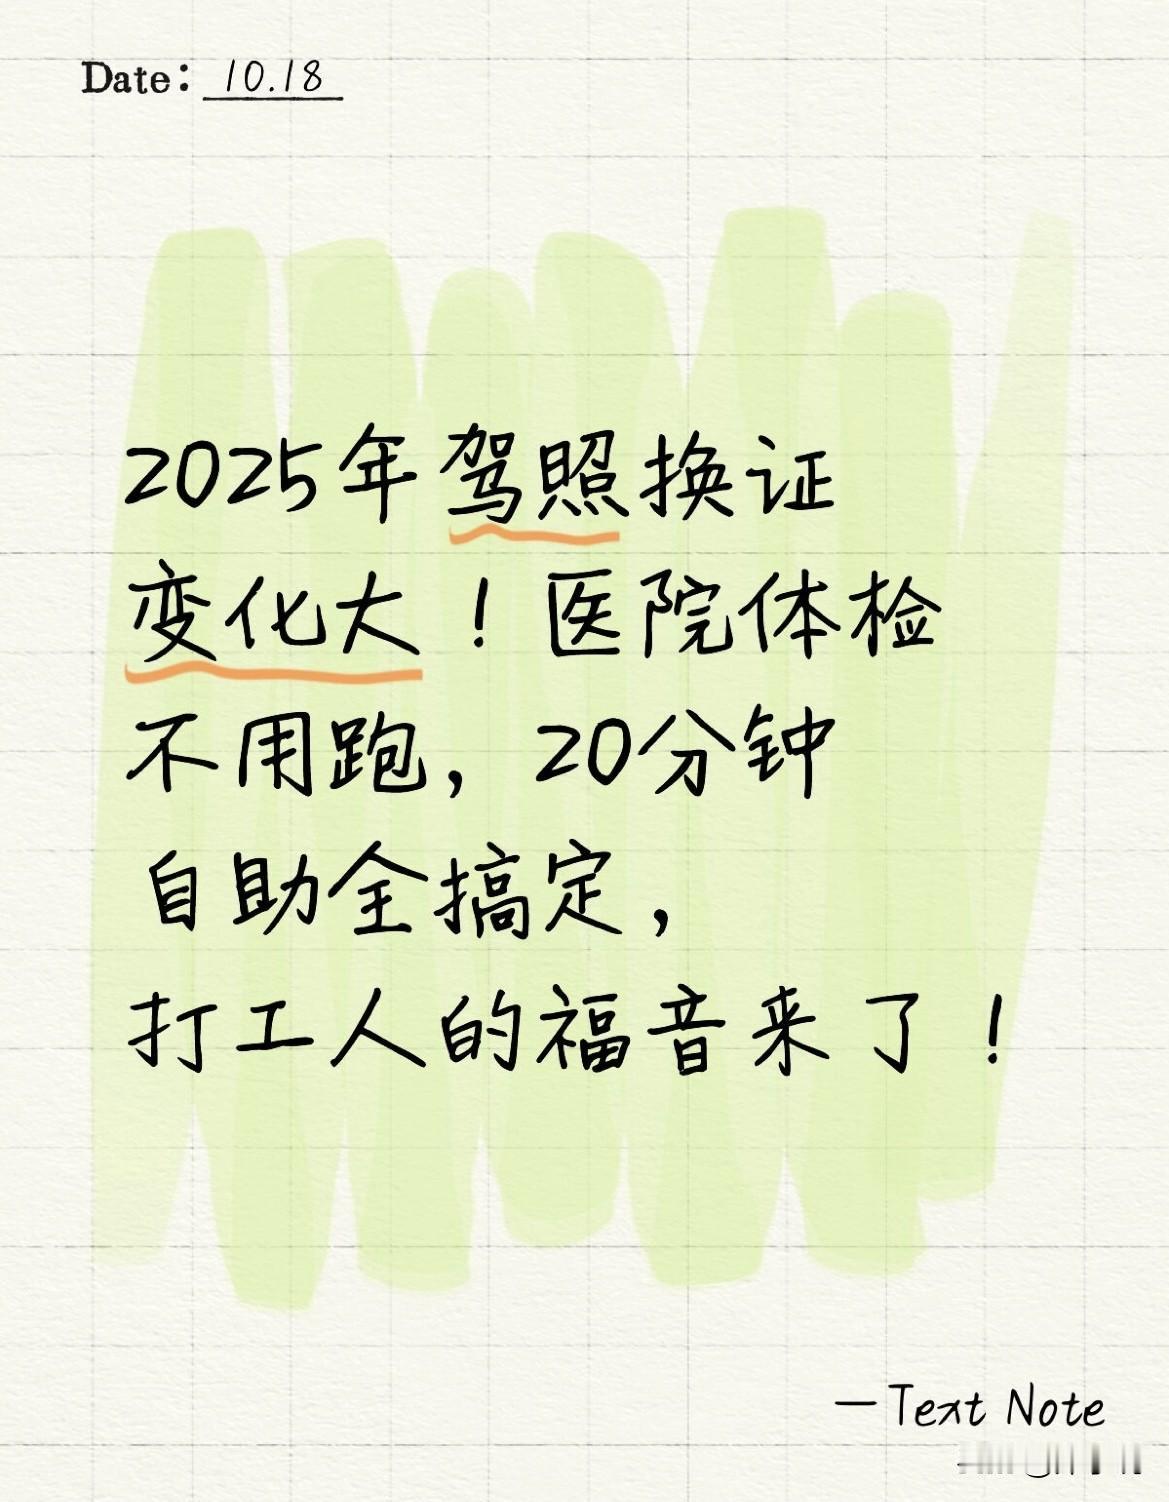 Date: 10.18
2025年驾照换证
变化大！医院体检
不用跑，20分钟
自助全搞定，
打工人的福音来了！
—Text Note